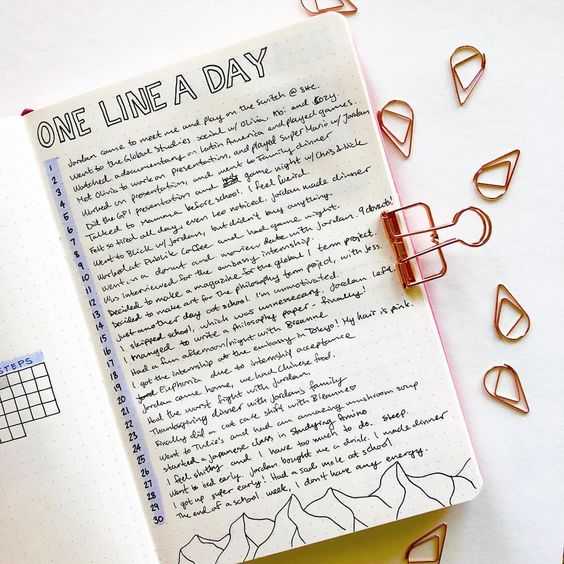 ONE LINE A DAY
1 Jordan came to meet me and play on the switch @ site.
2 Went to the Global Studies social w/ Olivia, Abi and Cozy
3 Watched a documentary on Latin America and played games.
4 Met Olivia to work on presentation, and played Super Mario w/ Jordan
5 Worked on presentation, and went to Family dinner
6 Did the GPI presentation and game night w/ Chris & Nick
7 Talked to mamma before school. I feel weird.
8 Felt so tired all day, even Leo noticed. Jordan made dinner
9 Went to Blick w/ Jordan, but didn't buy anything.
10 Worked at Public Coffee and had game night.
11 Went on a donut and movie date with Jordan
12 Was interviewed for the embassy internship.
13 Decided to make a magazine for the global 1 term project.
14 Decided to make art for the philosophy term project, with Jess.
15 Just another day at school. I'm unmotivated.
16 I skipped school, which was unnecessary. Jordan left.
17 I managed to write a Philosophy paper, finally.
18 Had a fun afternoon/night with Breanne
19 I got the internship at the embassy in Tokyo! My hair is pink.
20 Euphoria due to internship acceptance
21 Jordan came home, we had Chinese food.
22 Had the worst fight with Jordan
23 Thanksgiving dinner with Jordan's family
24 Finally did a cat cafe shift with Breanne
25 Went to Julie's and had an amazing mushroom soup
26 Started a Japanese class in studying Amino
27 I feel shitty and I have too much to do. sleep.
28 Went to bed early. Jordan bought me a drink. I made dinner
29 I got up super early. Had a sad mole at school
30 The end of a school week, I don't have any energy.
STEPS